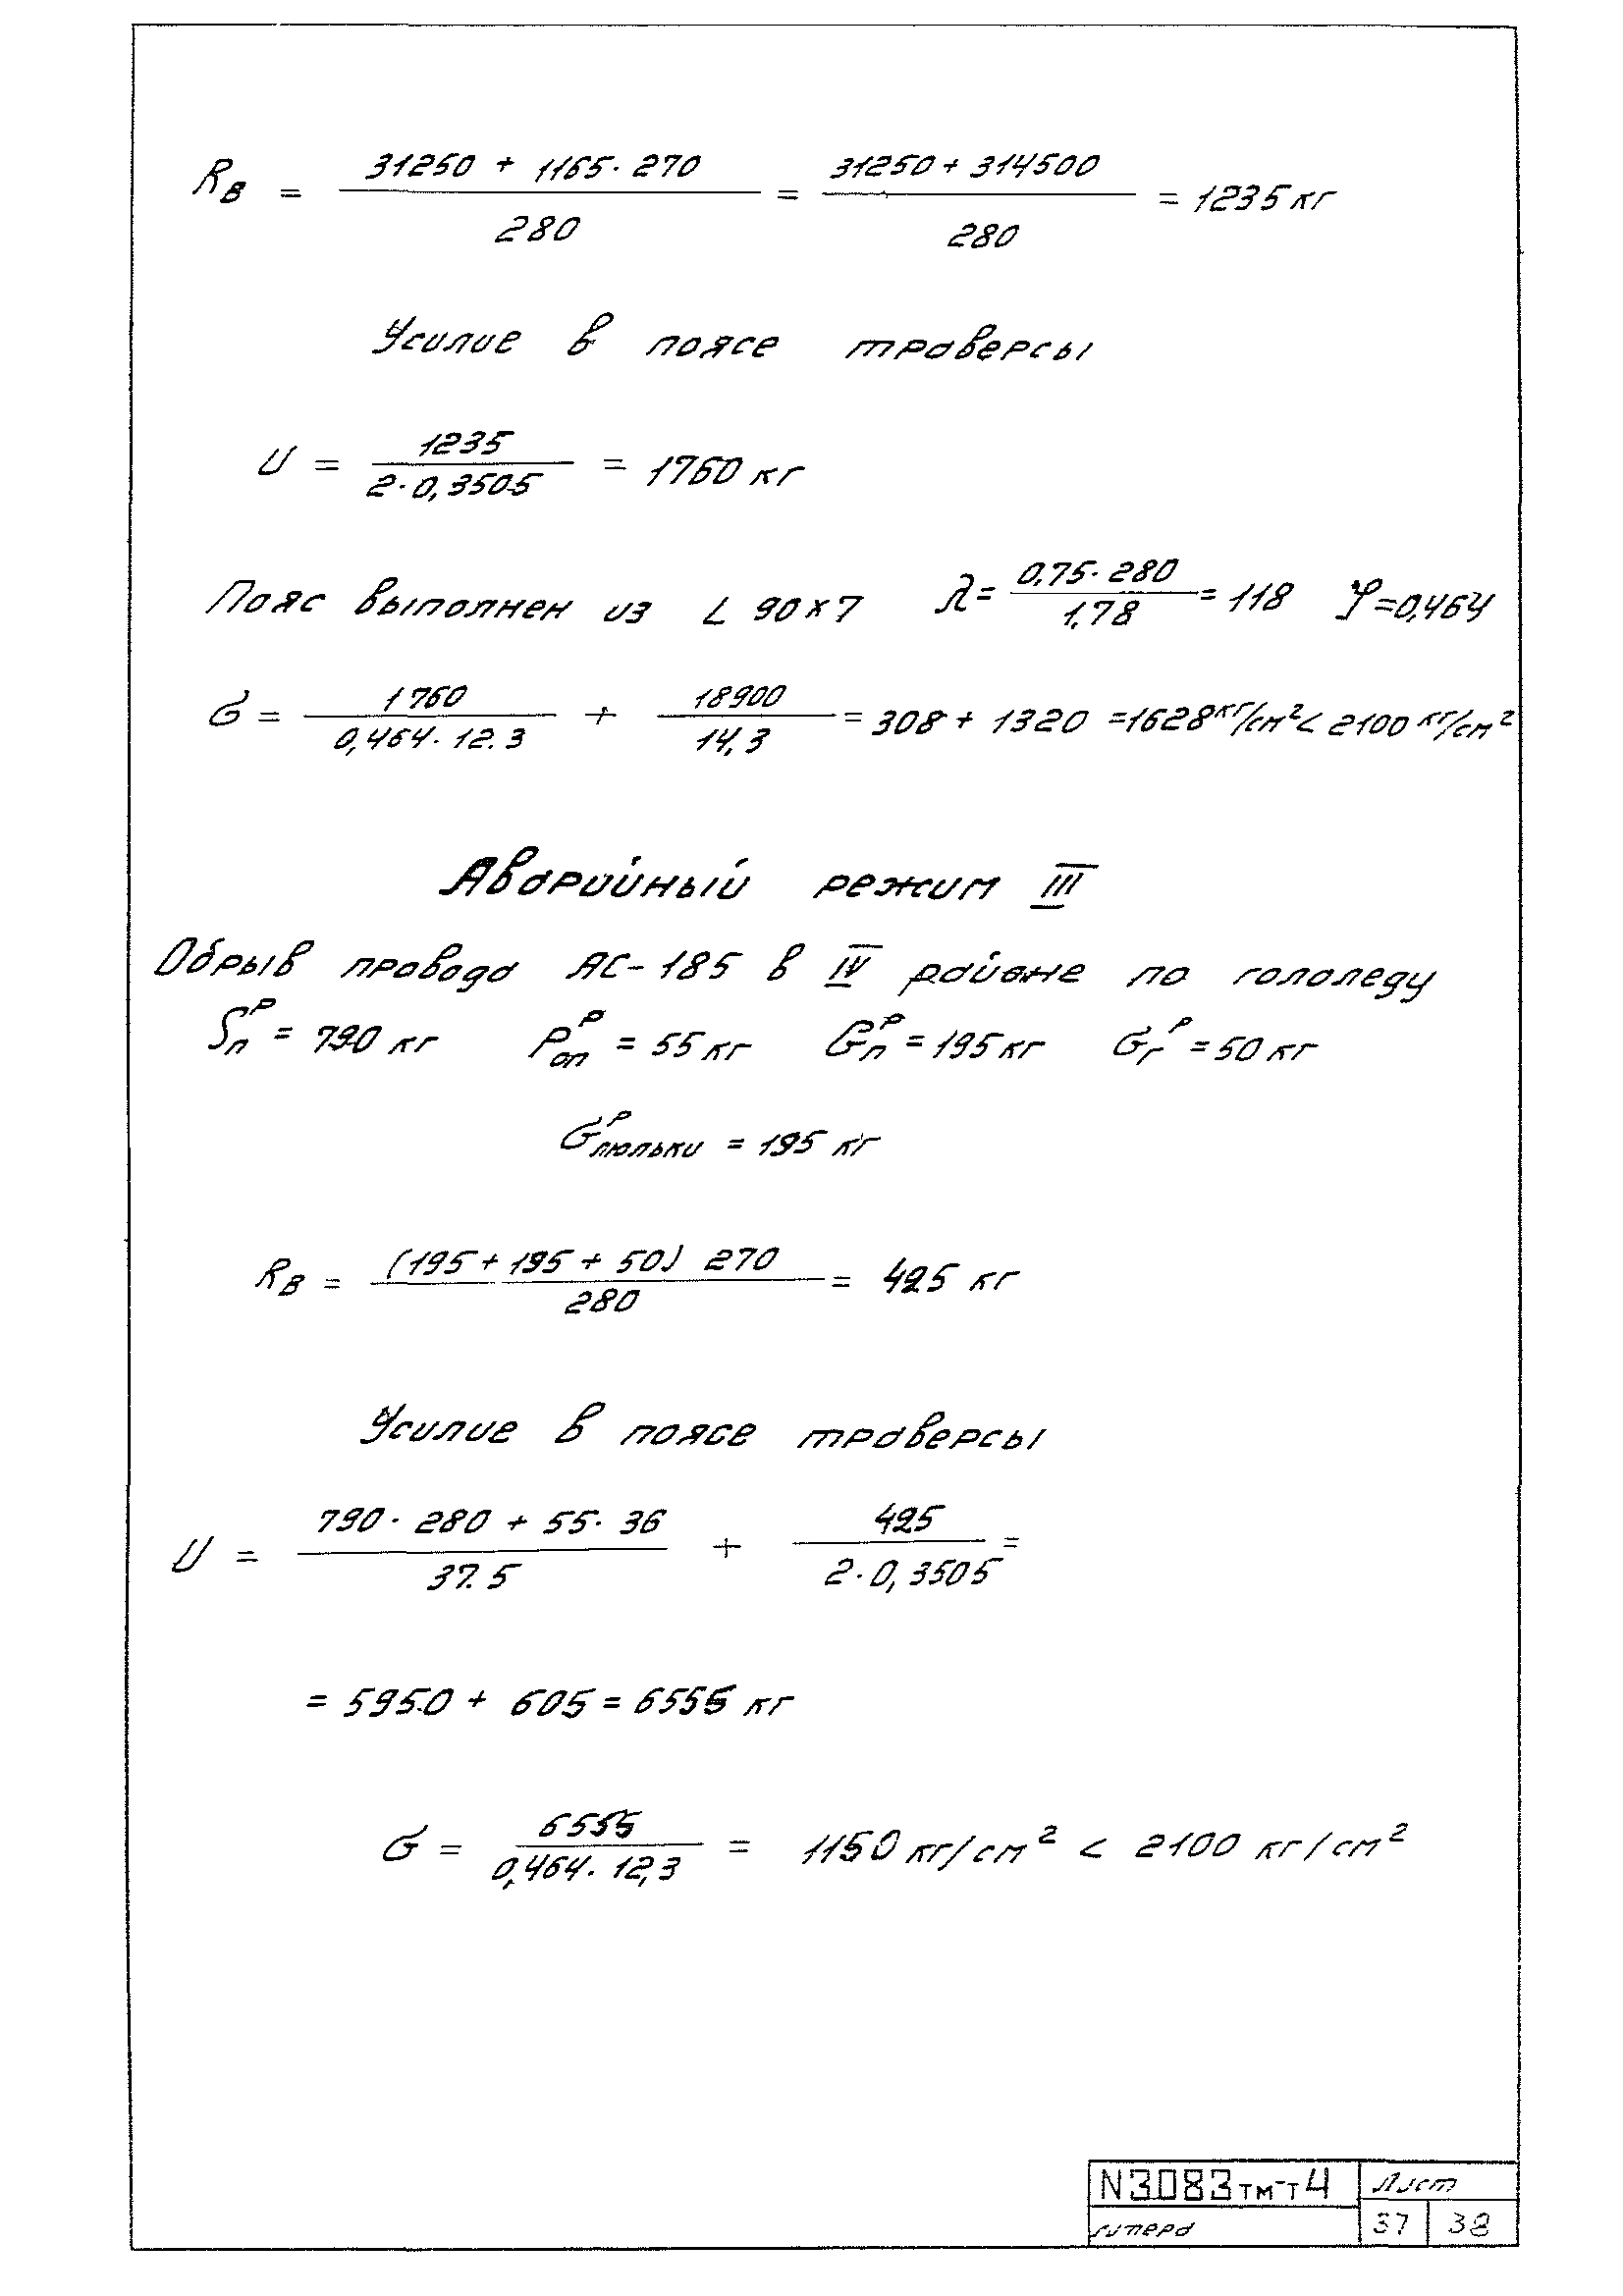 R_в = (31250 + 1165·270)/280 = (31250 + 314500)/280 = 1235 кг
Усилие в поясе траверсы
U = 1235/(2·0,3505) = 1760 кг
Пояс выполнен из L 90×7 λ = (0,75·280)/1,78 = 118 φ = 0,464
σ = 1760/(0,464·12.3) + 18900/14,3 = 308 + 1320 = 1628 кг/см² < 2100 кг/см²
Аварийный режим III
Обрыв провода АС-185 в IV районе по гололеду
S_п^р = 790 кг P_оп^р = 55 кг G_п^р = 195 кг G_г^р = 50 кг
G_люльки^р = 195 кг
R_в = (195 + 195 + 50) 270/280 = 425 кг
Усилие в поясе траверсы
U = (790·280 + 55·36)/37.5 + 425/(2·0,3505) =
= 5950 + 605 = 6555 кг
σ = 6555/(0,464·12,3) = 1150 кг/см² < 2100 кг/см²
N3083тм-т4 Лист
литера 37 38